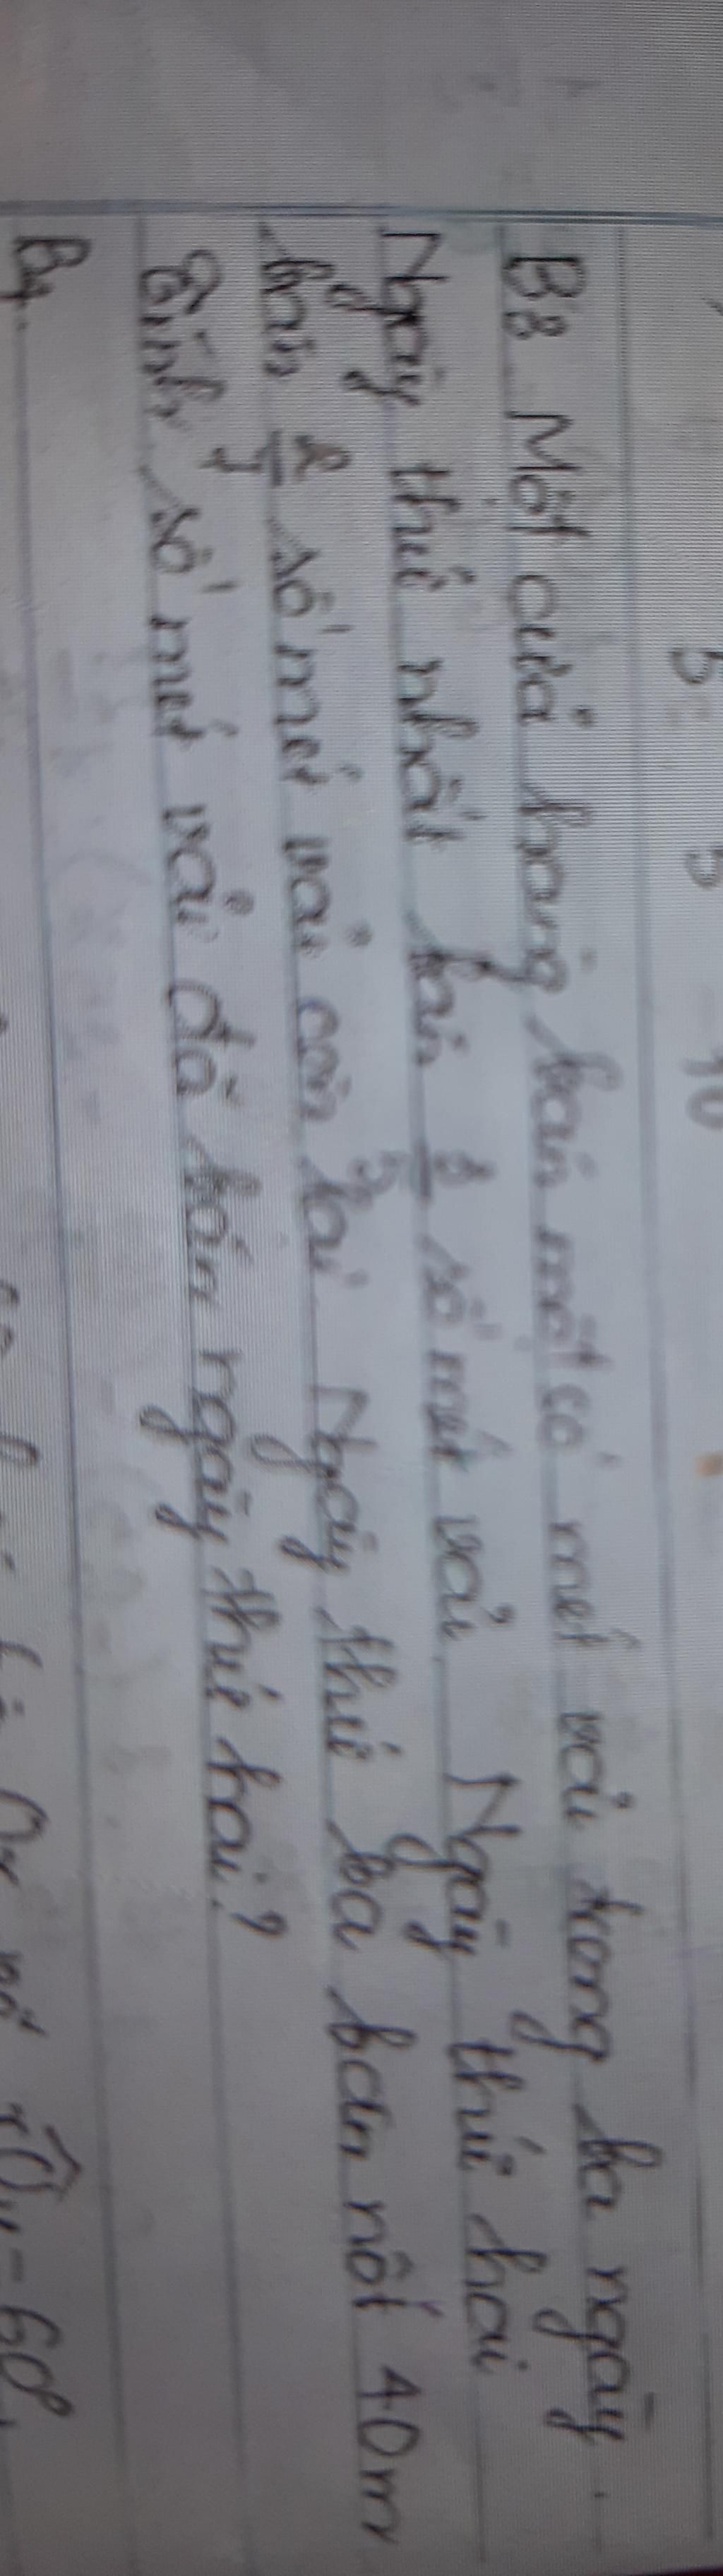 5 5 10
B3 Một cửa hàng bán một số mét vải trong ba ngày.
Ngày thứ nhất bán 3/5 số mét vải. Ngày thứ hai
bán 2/7 số mét vải còn lại. Ngày thứ ba bán nốt 40m
Tính số mét vải đã bán ngày thứ hai?
B4.